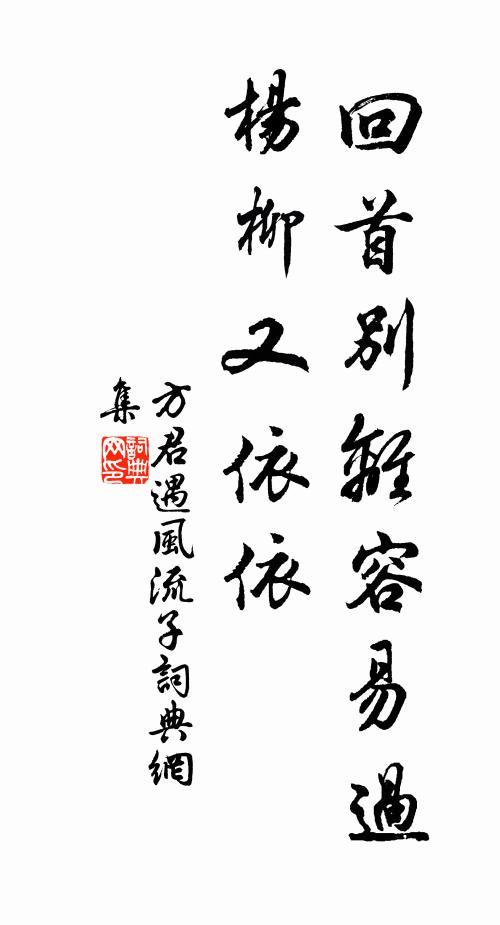 回首別離容易過
楊柳又依依
方君遇風流子詞典網
集
詞典
網印